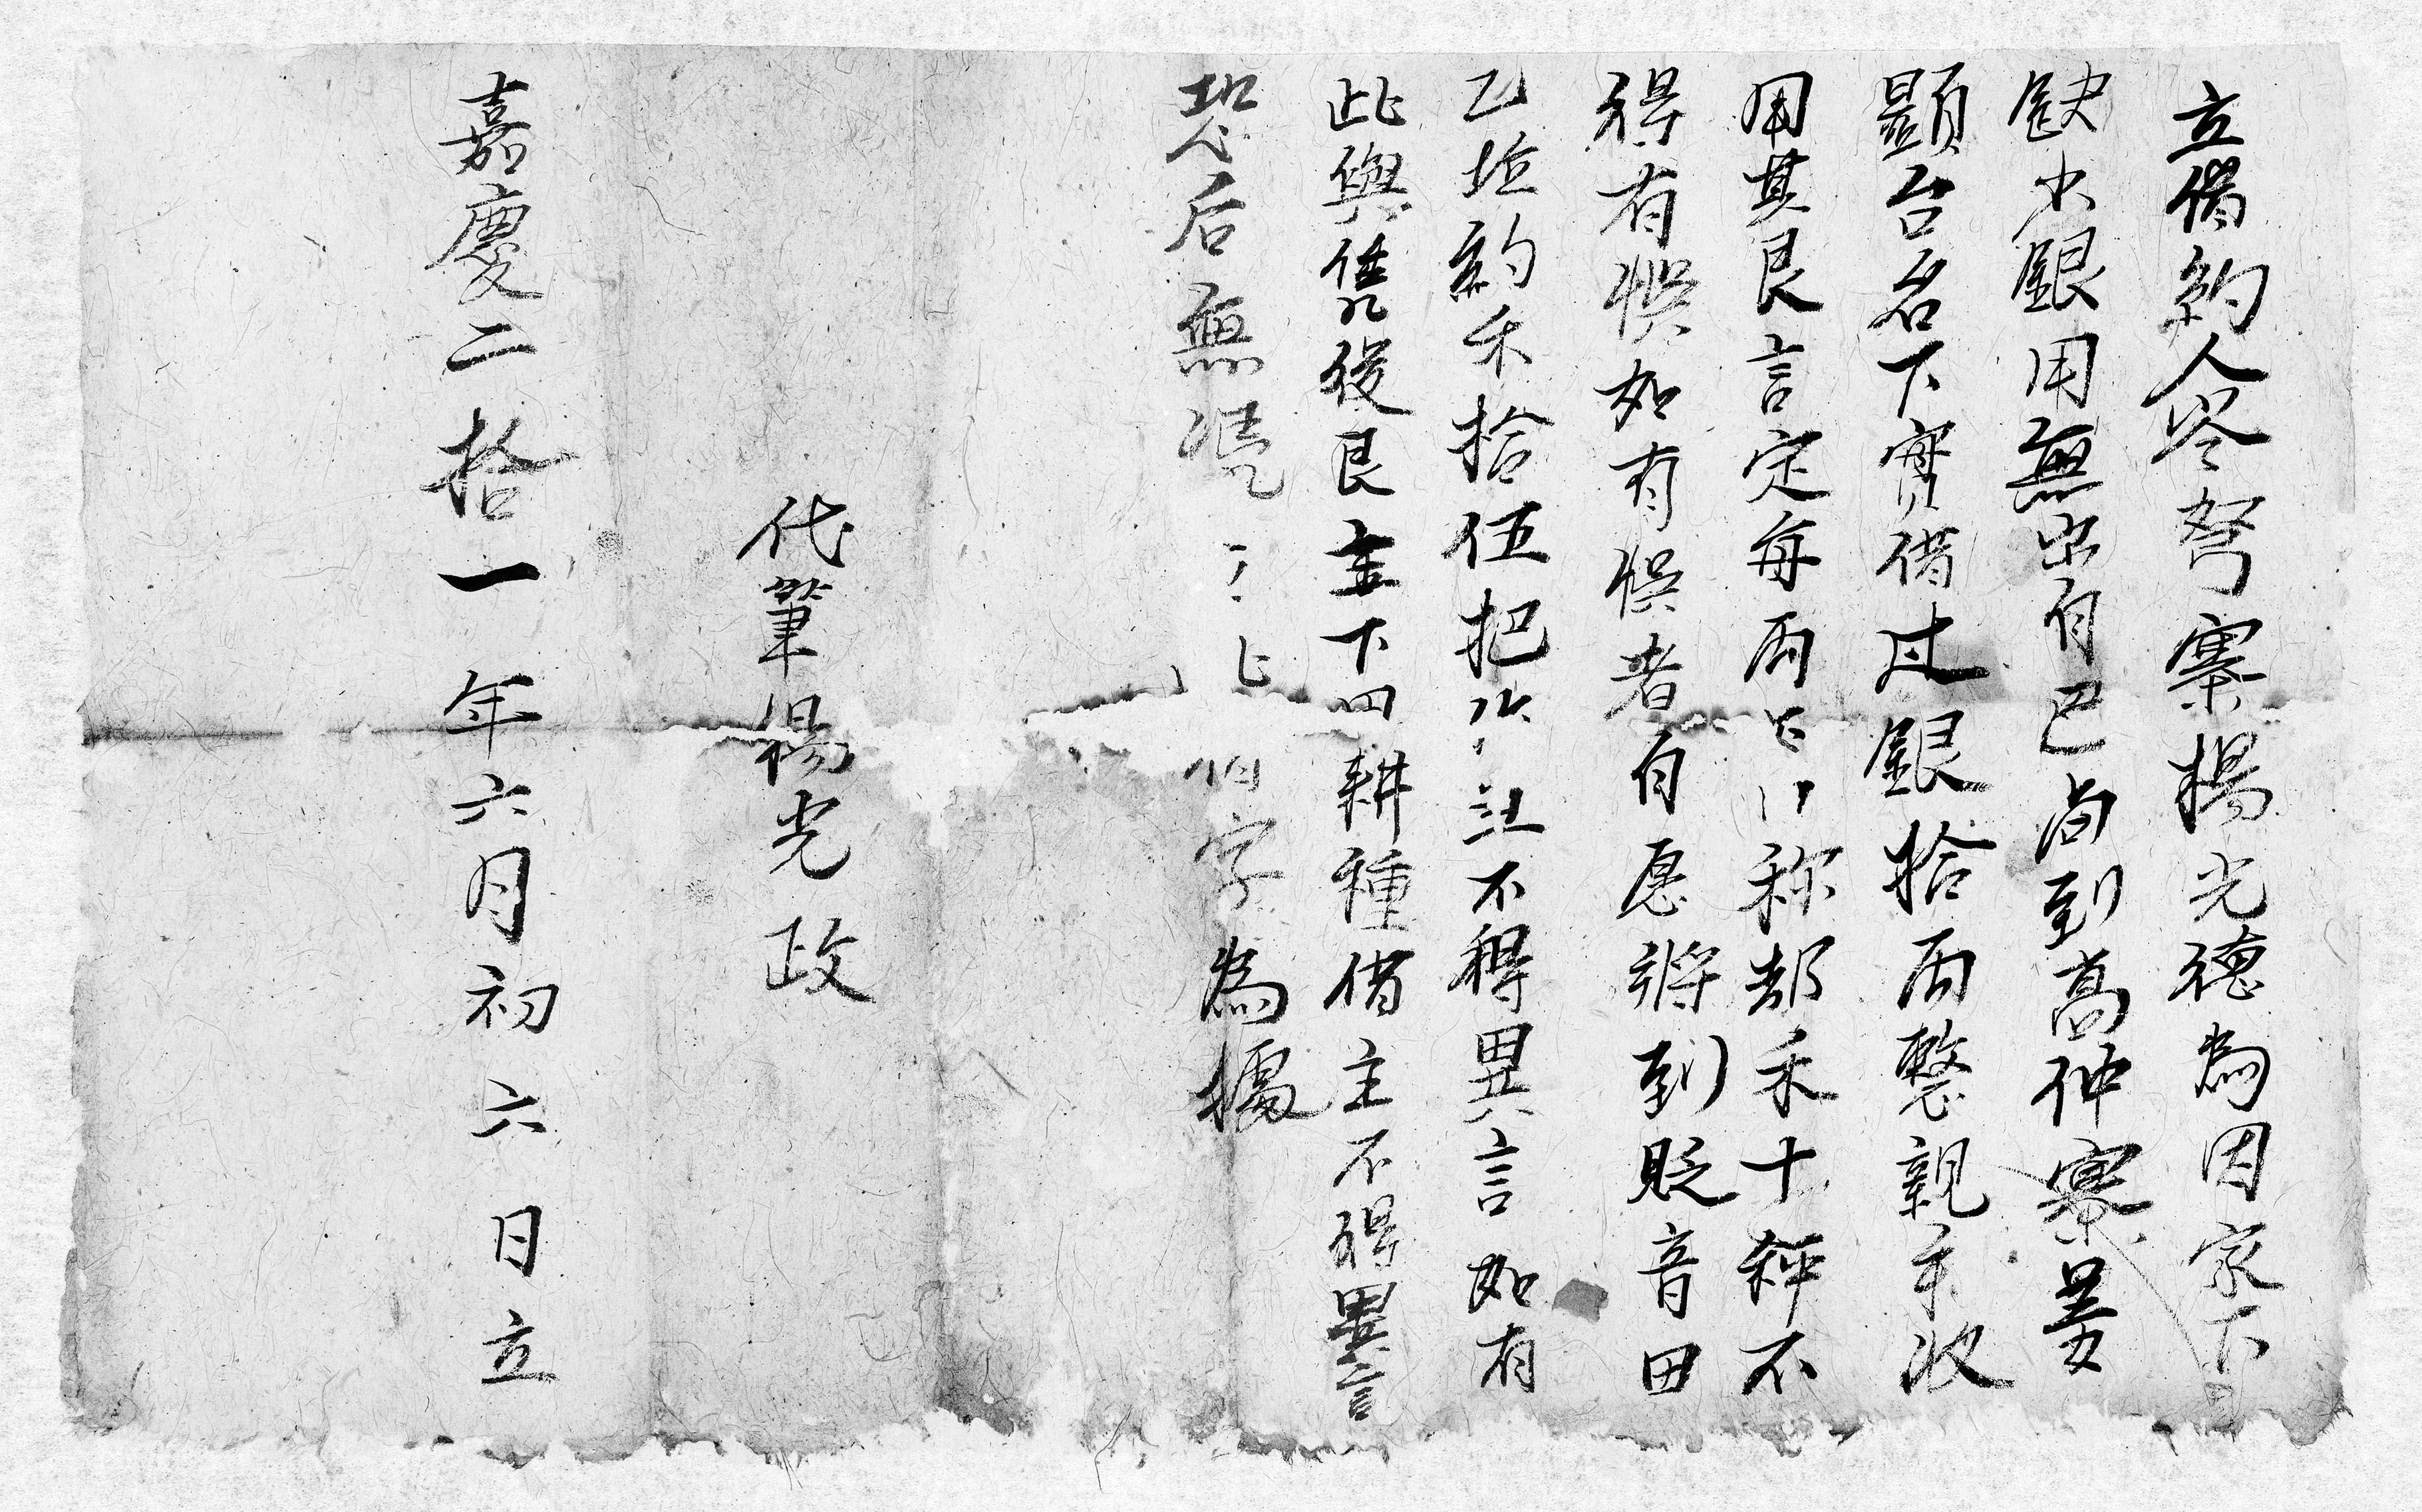 立借約人岑努寨楊光德為因家下
缺少銀用無出自己尚到高仲寨姜
顯台名下實借过銀拾両整親手收
用其艮言定每両 称却禾十秤不
得有悮如有悮者自愿將到貶音田
乙坵約禾拾伍把 不得異言如有
此與售後艮主下四耕種借主不得異言
恐后無凴立 字為據
代筆楊光政
嘉慶二拾一年六月初六日立